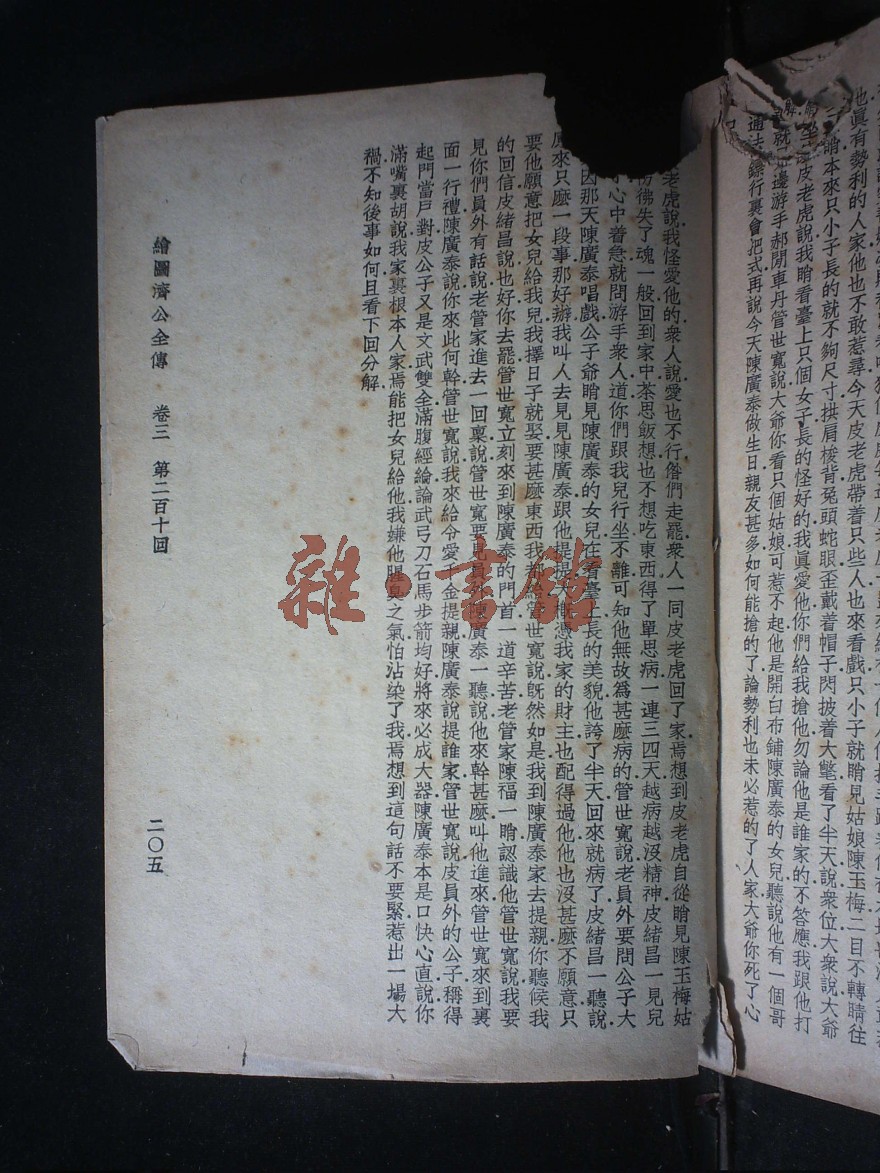 也真有勢利的人家他也不敢惹尋今天皮老虎帶着只些人也來看戲只小子就睄見姑娘陳玉梅二目不轉睛往
睄本來只小子長的就不夠尺寸拱肩梭背兔頭蛇眼歪戴着帽子閃披着大氅看了半天說衆位大衆說大爺
皮老虎說我睄看臺上只個女子長的怪好的我眞愛他你們給我搶他勿論他是誰家的不答應我跟他打
就邊游手郝閒車丹管世寬說大爺你看只個姑娘可惹不起他是開白布鋪陳廣泰的女兒聽說他有一個哥
通法鏢行裏會把式再說今天陳廣泰做生日親友甚多如何能搶的了論勢利也未必惹的了人家大爺你死了心
老虎說我怪愛他的衆人說愛也不行偺們走罷衆人一同皮老虎回了家焉想到皮老虎自從睄見陳玉梅姑
彷彿失了魂一般回到家中茶思飯想也不想吃東西得了單思病一連三四天越病越沒精神皮緒昌一見兒
心中着急就問游手衆人道你們跟我兒行坐不離可知他無故爲甚麽病的管世寬說老員外要問公子大
因那天陳廣泰唱戲公子爺睄見陳廣泰的女兒在看臺上長的美貌他誇了半天回來就病了皮緒昌一聽說
來只麽一段事那好辦我叫人去見見陳廣泰跟他提提大概憑我家的財主也配得過他他也沒甚麽不願意只
要他願意把女兒給我兒我擇日子就娶要甚麽東西我都給管世寬說旣然如是我到陳廣泰家去提親你聽候我
的回信皮緒昌說也好你去罷管世寬立刻來到陳廣泰的門首一道辛苦老管家陳福一睄認識他管世寬說我要
見你們員外有話說老管家進去一回稟說管世寬要見員外陳廣泰一聽說他來幹甚麽叫他進來管世寬來到裏
面一行禮陳廣泰說你來此何幹管世寬說我來給令愛千金提親陳廣泰說提誰家管世寬說皮員外的公子稱得
起門當戶對皮公子又是文武雙全滿腹經綸論武弓刀石馬步箭均好將來必成大器陳廣泰本是口快心直說你
滿嘴裏胡說我家裏根本人家焉能把女兒給他我嫌他腥臭之氣怕沾染了我焉想到這句話不要緊惹出一場大
禍不知後事如何且看下回分解
繪圖濟公全傳 卷三 第二百十回
二〇五
雜·書館